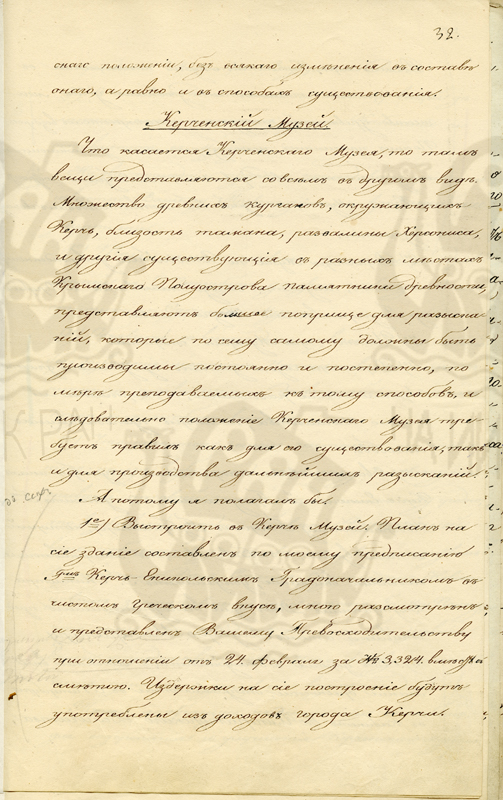 32.
снаго положенія, безъ всякаго измѣненія въ составѣ
онаго, а равно и въ способахъ существованія.
Керченскій Музей.
Что касается Керченскаго Музея, то тамъ
вещи представляются совсѣмъ въ другомъ видѣ.
Множество древнихъ кургановъ, окружающихъ
Керчь, близость Тамана, развалины Херсониса,
и другія существующія въ разныхъ мѣстахъ
Крымскаго Полуострова памятники древности,
представляютъ большее поприще для разыска-
ній, которые по сему самому должны быть
производимы постоянно и постепенно, по
мѣрѣ преподаваемыхъ къ тому способовъ, и
слѣдовательно положеніе Керченскаго Музея тре-
буетъ правилъ какъ для его существованія, такъ
и для производства дальнѣйшихъ разысканій.
А потому я полагалъ бы.
1е) Выстроить въ Керчѣ Музей. Планъ на
сіе зданіе составленъ по моему предписанію
Керчь-Еникольскимъ Градоначальникомъ въ
чистомъ Греческомъ вкусѣ, мною разсмотрѣнъ
и представленъ Вашему Превосходительству
при отношеніи отъ 24 февраля за № 3,324. вмѣстѣ со
смѣтою. Издержки на сіе построеніе будутъ
употреблены изъ доходовъ города Керчи.